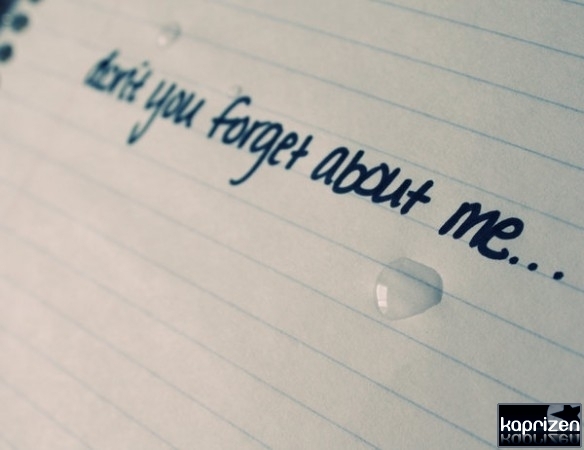 don't you forget about me...
kaprizen